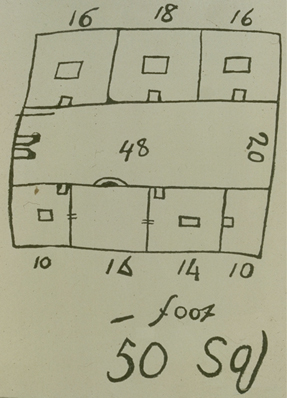 16 18 16
48 20
10 16 14 10
– foot
50 Sq